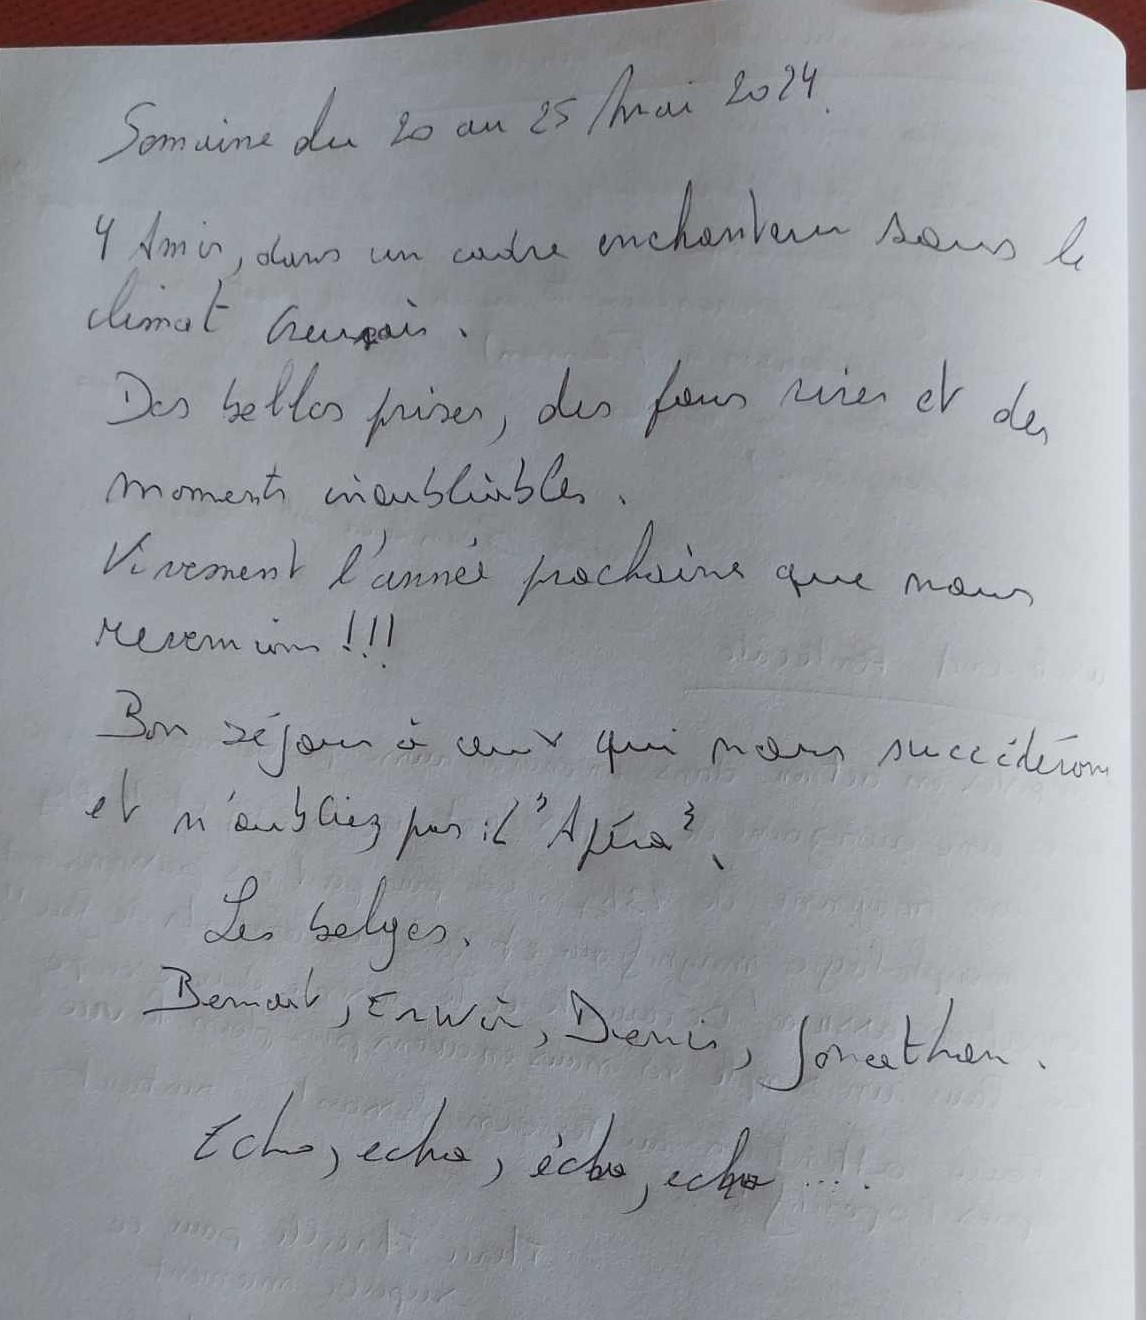 Semaine du 20 au 25 Mai 2024.
4 Amis, dans un cadre enchanteur sous le
climat Creusois.
Des belles prises, des fous rires et des
moments inoubliables.
Vivement l'année prochaine que nous
revenions !!!
Bon séjour à ceux qui nous succéderons
et n'oubliez pas : l'"Apéro".
Les belges.
Benoit, Erwin, Denis, Jonathan.
Echo, echo, écho, echo ....